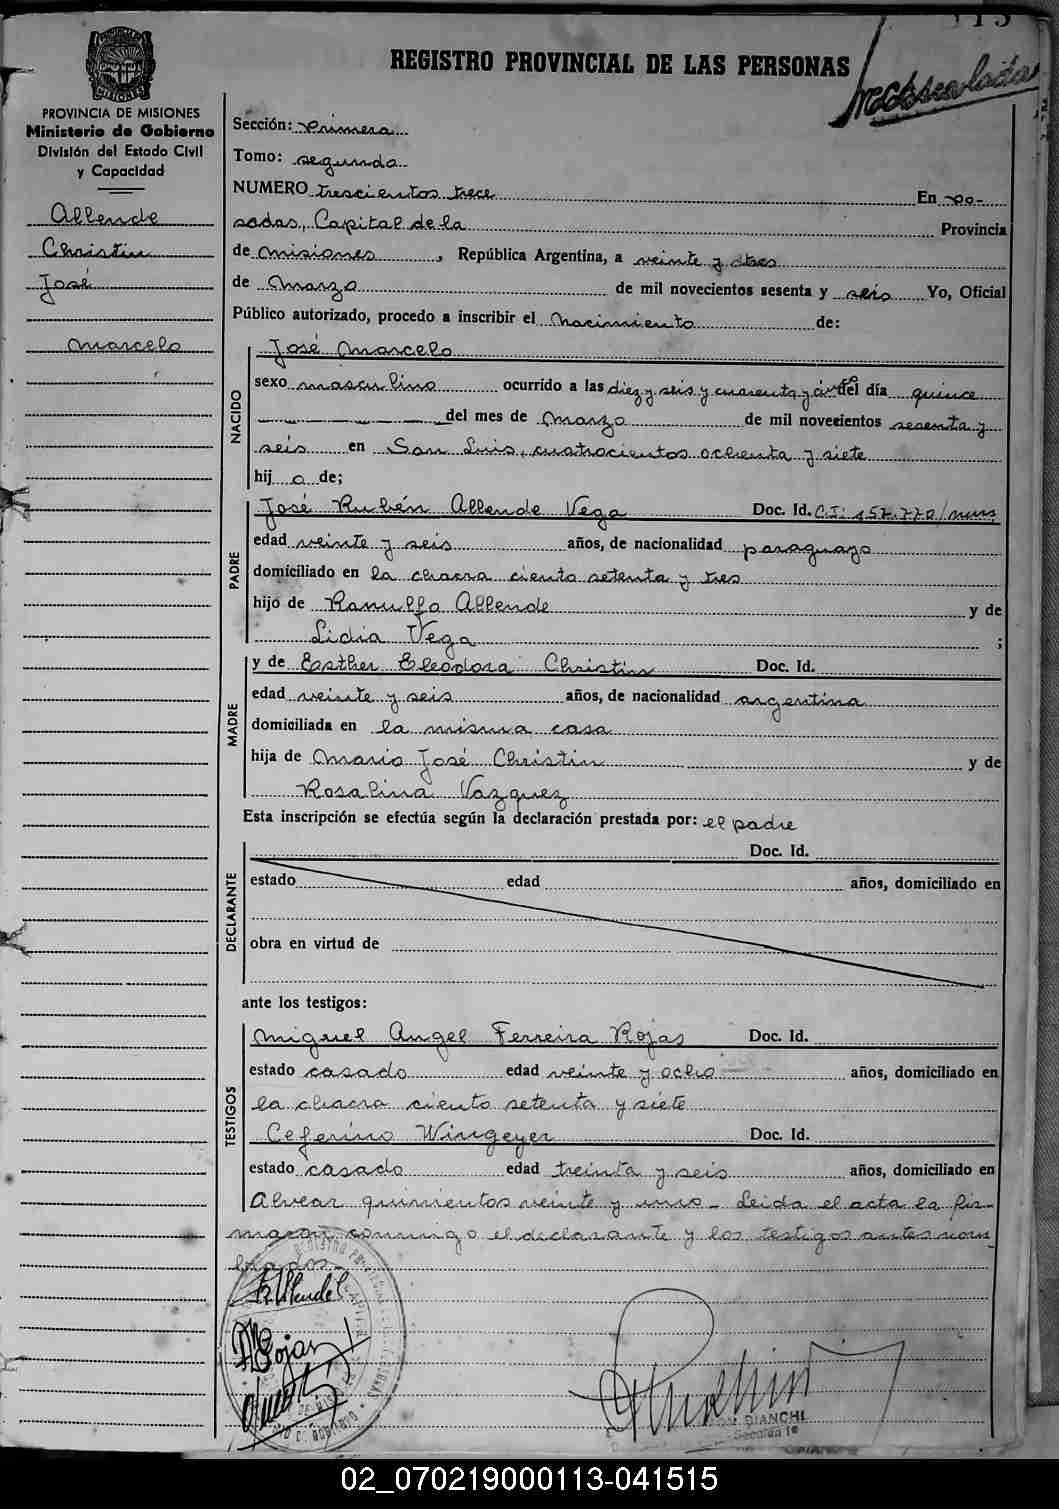 REGISTRO PROVINCIAL DE LAS PERSONAS
PROVINCIA DE MISIONES
Ministerio de Gobierno
División del Estado Civil
y Capacidad
Allende
Christin
José
Marcelo
Sección: Primera
Tomo: segundo
NUMERO trescientos trece En Po-
sadas, Capital de la Provincia
de Misiones, República Argentina, a veinte y dos
de Marzo de mil novecientos sesenta y seis Yo, Oficial
Público autorizado, procedo a inscribir el Nacimiento de:
NACIDO
José Marcelo
sexo masculino ocurrido a las diez y seis y cuarenta y cinco del día quince
del mes de Marzo de mil novecientos sesenta y
seis en San Luis, cuatrocientos ochenta y siete
hij o de;
PADRE
José Rubén Allende Vega Doc. Id. C.I: 157.770/
edad veinte y seis años, de nacionalidad paraguayo
domiciliado en la chacra ciento setenta y tres
hijo de Ranulfo Allende y de
Lidia Vega ;
MADRE
y de Esther Eleodora Christin Doc. Id.
edad veinte y seis años, de nacionalidad argentina
domiciliada en la misma casa
hija de Mario José Christin y de
Rosalina Vazquez
Esta inscripción se efectúa según la declaración prestada por: el padre
DECLARANTE
Doc. Id.
estado edad años, domiciliado en
obra en virtud de
ante los testigos:
TESTIGOS
Miguel Angel Ferreira Rojas Doc. Id.
estado casado edad veinte y ocho años, domiciliado en
la chacra ciento setenta y siete
Ceferino Wingeyer Doc. Id.
estado casado edad treinta y seis años, domiciliado en
Alvear quinientos veinte y uno - Leida el acta la fir-
maron conmigo el declarante y los testigos antes nom-
brados
BIANCHI
02_070219000113-041515